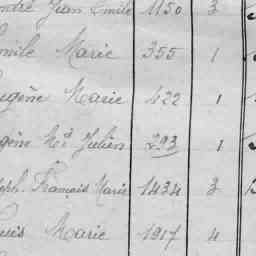 André Jean Emile 1150 3
Emile Marie 355 1
Eugène Marie 422 1
Eugène Mie Julien 293 1
Joseph François Marie 1434 3
Louis Marie 1917 4